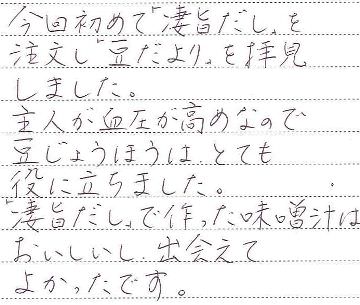 今回初めて「凄旨だし」を
注文し「豆だより」を拝見
しました。
主人が血圧が高めなので
豆じょうほうは とても
役に立ちました。
「凄旨だし」で作った味噌汁は
おいしいし、出会えて
よかったです。